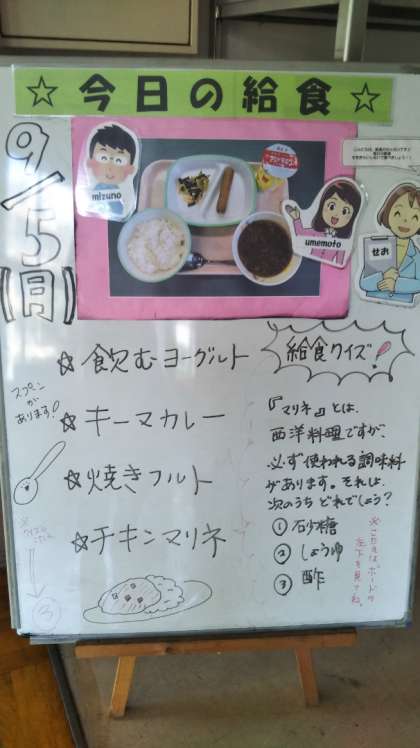 ☆今日の給食☆
9/5
【月】
mizuno
umemoto
せお
☆飲むヨーグルト
☆キーマカレー
☆焼きフルト
☆チキンマリネ
スプーンが
あります!
給食クイズ!
『マリネ』とは、
西洋料理ですが、
必ず使われる調味料
があります。それは、
次のうちどれでしょう?
①砂糖
②しょうゆ
③酢
※こたえはボードの
左下を見てね。
③